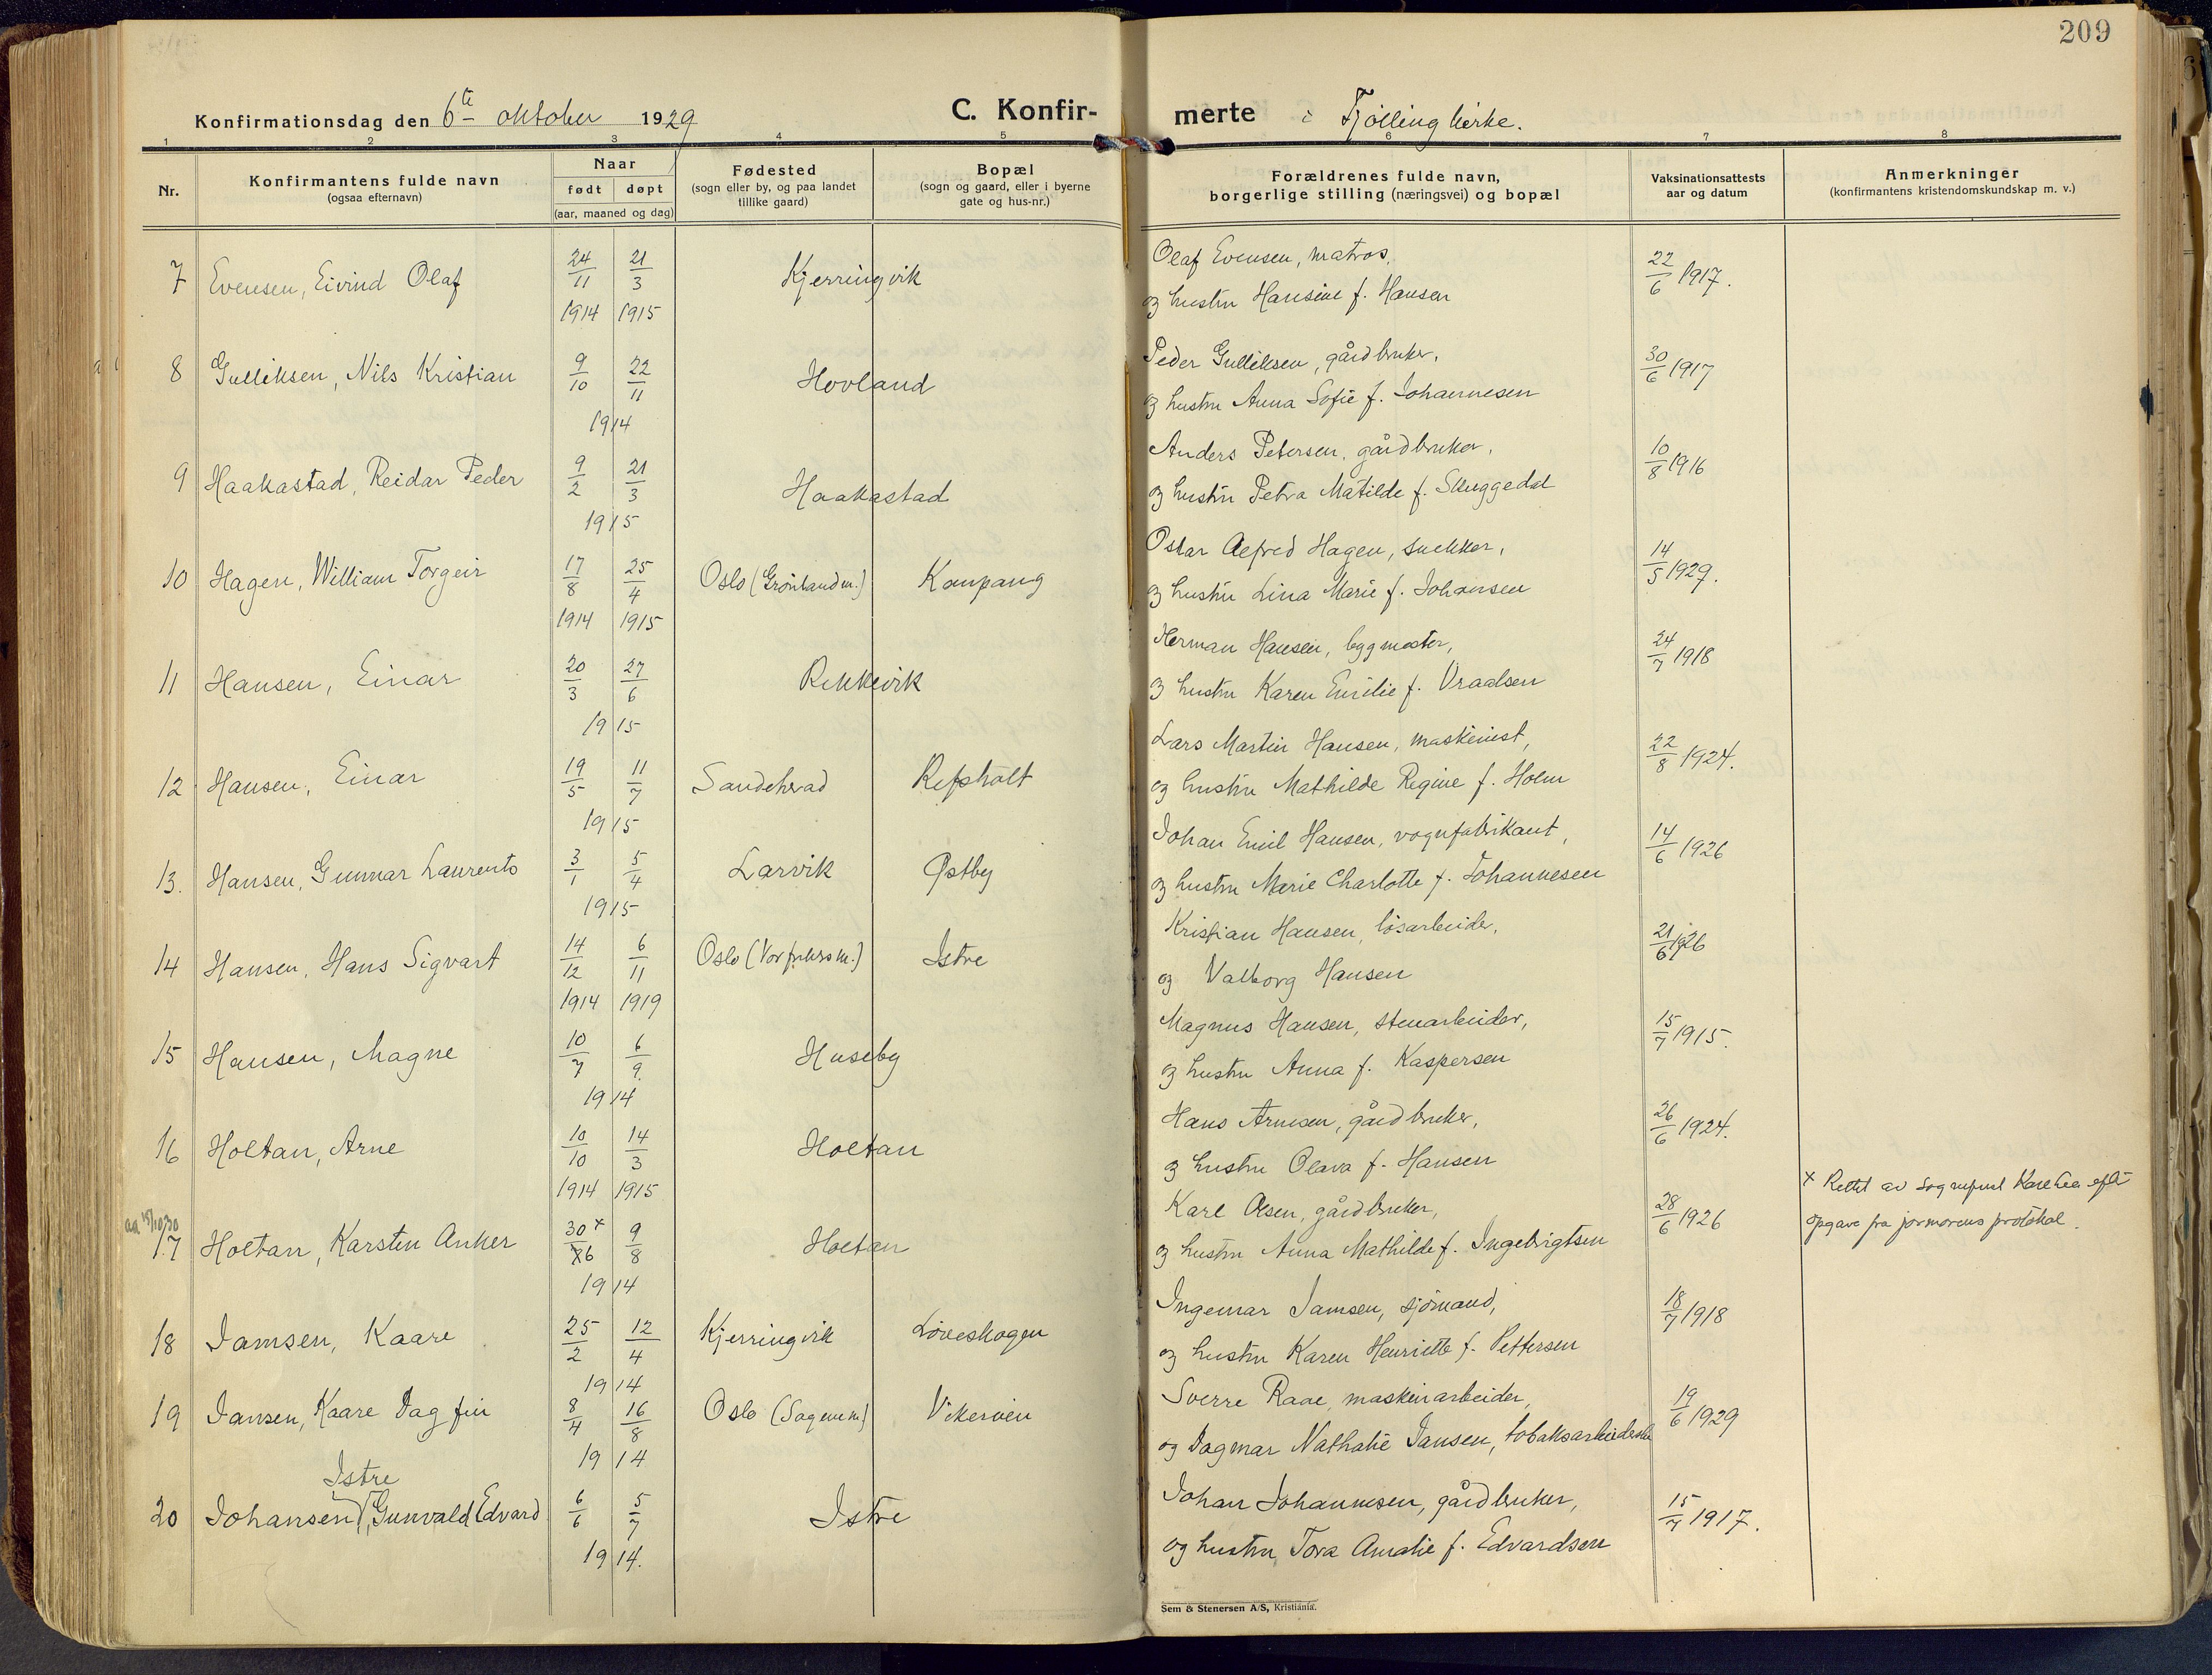 209
Konfirmationsdag den 6te oktober 1929
C. Konfir-
merte i Tjølling kirke.
1 2 3 4 5 6 7 8
Nr.
Konfirmantens fulde navn
(ogsaa efternavn)
Naar
født døpt
(aar, maaned og dag)
Fødested
(sogn eller by, og paa landet
tillike gaard)
Bopæl
(sogn og gaard, eller i byerne
gate og hus-nr.)
Forældrenes fulde navn,
borgerlige stilling (næringsvei) og bopæl
Vaksinationsattests
aar og datum
Anmerkninger
(konfirmantens kristendomskundskap m. v.)
7 Evensen, Eivind Olaf 24/11 1914 21/3 1915 Kjerringvik
Olaf Evensen, matros,
og hustru Hansine f. Hansen
22/6 1917.
8 Gulliksen, Nils Kristian 9/10 22/11 1914 Hovland
Peder Gulliksen, gårdbruker,
og hustru Anna Sofie f. Johannesen
30/6 1917
9 Haakastad, Reidar Peder 9/2 21/3 1915 Haakastad
Anders Petersen, gårdbruker,
og hustru Petra Matilde f. Skuggedal
10/8 1916
10 Hagen, William Torgeir 17/8 1914 25/4 1915 Oslo (Grønland m.) Kaupang
Oskar Alfred Hagen, snekker,
og hustru Lina Marie f. Johansen
14/5 1929.
11 Hansen, Einar 20/3 27/6 1915 Rekkevik
Herman Hansen, byggmester,
og hustru Karen Emilie f. Vraalsen
24/7 1918
12 Hansen, Einar 19/5 11/7 1915 Sandeherad Refsholt
Lars Martin Hansen, maskinist,
og hustru Mathilde Regine f. Holm
22/8 1924.
13. Hansen, Gunnar Laurents 3/1 5/4 1915 Larvik Østby
Johan Emil Hansen, vognfabrikant,
og hustru Marie Charlotte f. Johannesen
14/6 1926
14 Hansen, Hans Sigvart 14/12 1914 6/11 1919 Oslo (Vor frelsers m.) Istre
Kristian Hansen, løsarbeider,
og Valborg Hansen
21/6 1926
15 Hansen, Magne 10/7 6/9. 1914 Huseby
Magnus Hansen, stenarbeider,
og hustru Anna f. Kaspersen
15/7 1915.
16 Holtan, Arne 10/10 1914 14/3 1915 Holtan
Hans Arnesen, gårdbruker,
og hustru Olava f. Hansen
26/6 1924.
aa 15/10 30
17 Holtan, Karsten Anker 30x/6 9/8 1914 Holtan
Karl Olsen, gårdbruker,
og hustru Anna Mathilde f. Ingebrigtsen
28/6 1926
x Rettet av sogneprest efter
opgave fra jormorens protokol.
18 Jamsen, Kaare 25/2 12/4 1914 Kjerringvik Løveskogen
Ingemar Jamsen, sjømand,
og hustru Karen Henriette f. Pettersen
18/7 1918
19 Jansen, Kaare Dagfin 8/4 16/8 1914 Oslo (Sagene m) Vikerøien
Sverre Raae, maskinarbeider,
og Dagmar Nathalie Jansen, tobaksarbeiderske
19/6 1929
Istre
20 Johansen, Gunvald Edvard 6/6 5/7 1914. Istre
Johan Johannesen, gårdbruker,
og hustru Tora Amalie f. Edvardsen
15/7 1917.
Sem & Stenersen A/S, Kristiania.